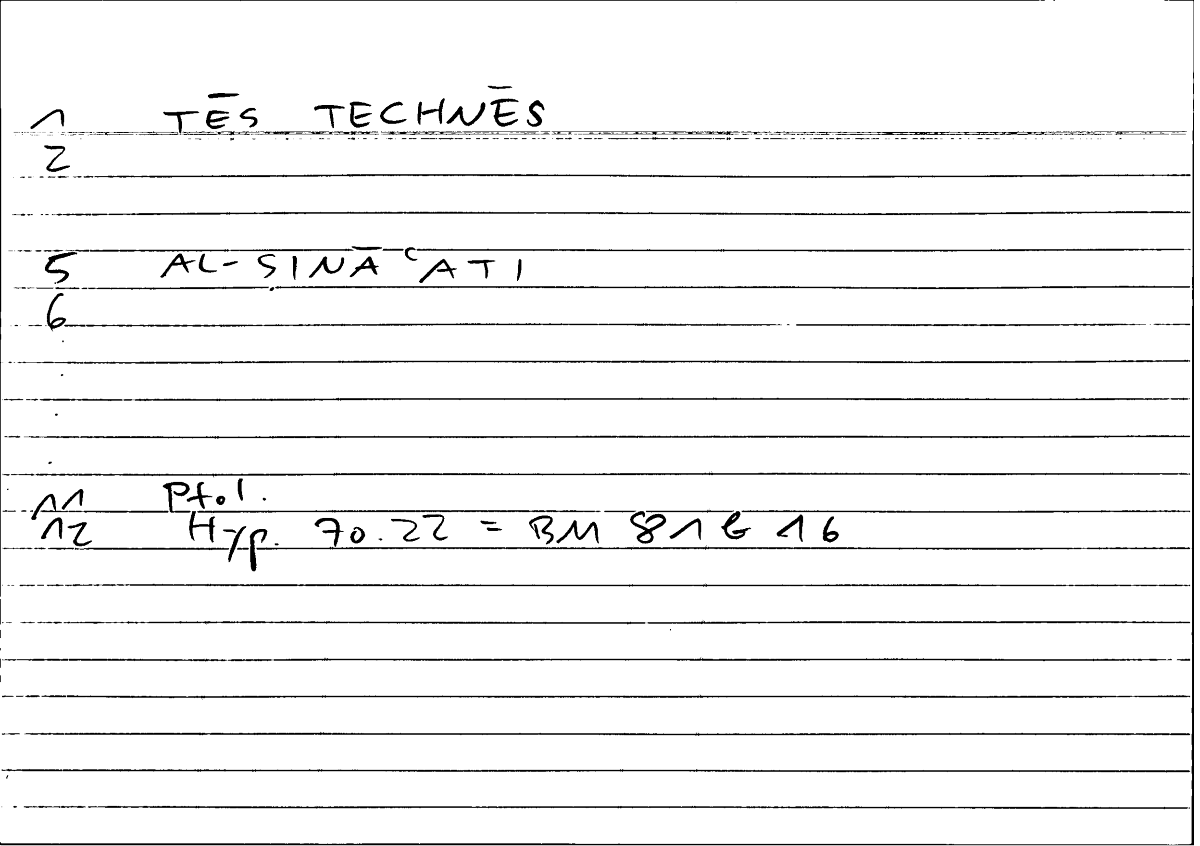 1 TĒS TECHNĒS
2
5 AL-ṢINĀʿATI
6
11 Ptol.
12 Hyp. 70.22 = BM 81b 16